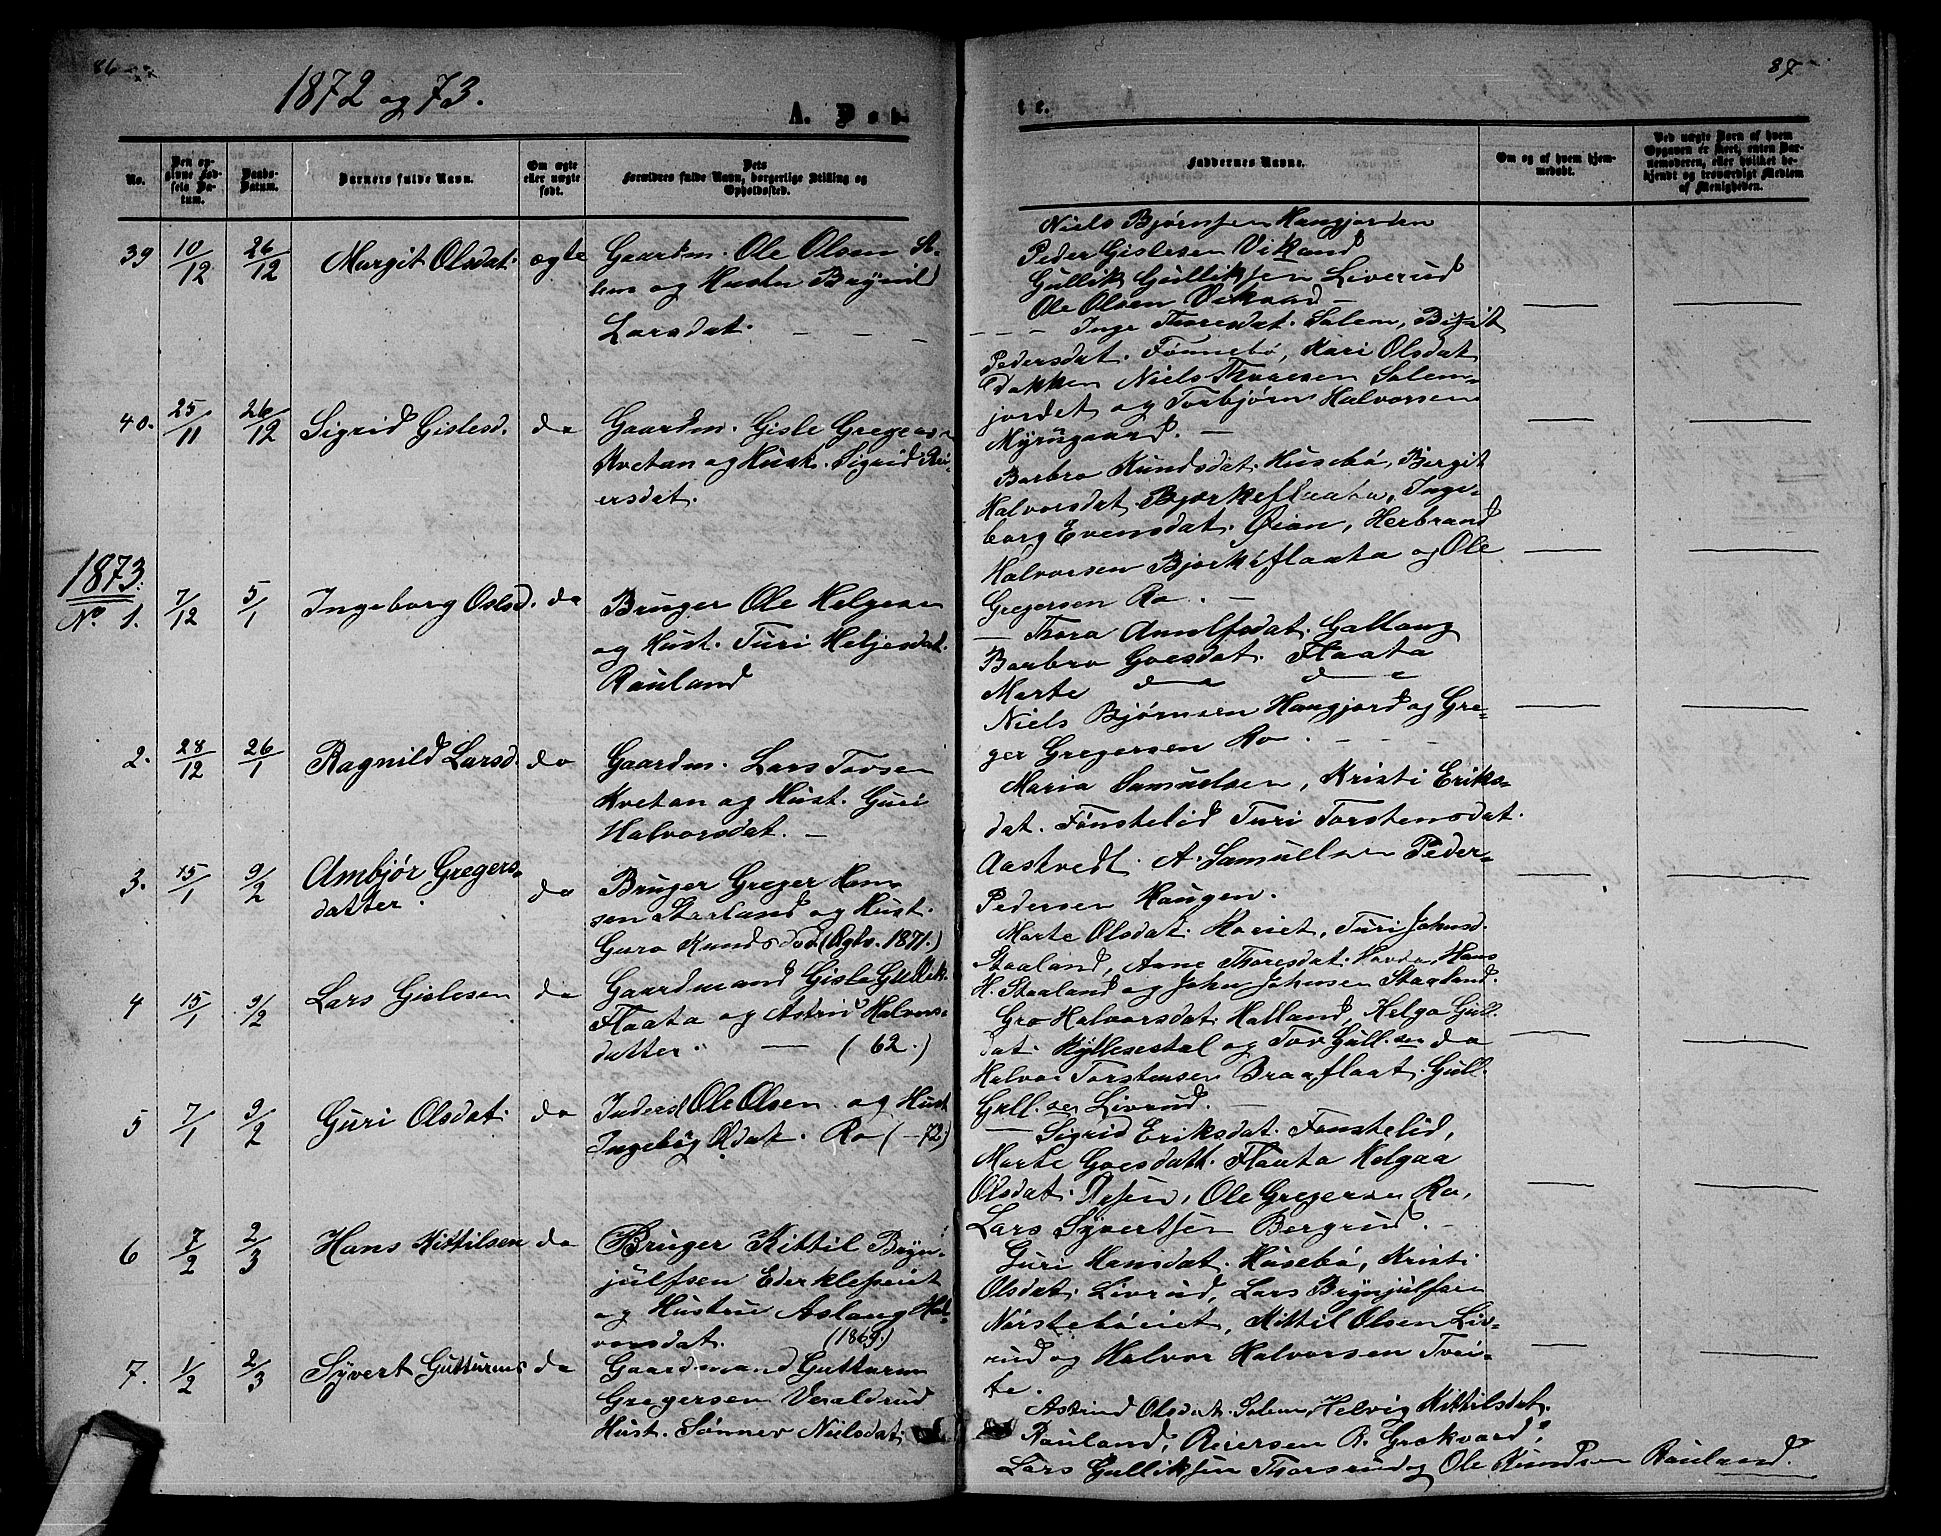 86
1872 og 73.
A. Døb-
No.
Den op-
givne Fød-
sels Da-
tum.
Daabs-
Datum.
Barnets fulde Navn.
Om ægte
eller uægte
født.
Dets
Forældres fulde Navn, borgerlige Stilling og
Opholdssted.
39 10/12 26/12 Margit Olsdat. ægte Gaardm. Ole Olsen
og Hustru
Larsdat. —
40. 25/11 26/12 Sigrid Gislesd. do Gaardm. Gisle
Kvetan og Hust. Sigrid Rei-
ersdat.
1873.
No. 1. 7/12 5/1 Ingeborg Olsd. do Bruger Ole Helgesen
og Hust. Turi Heljesdat.
Rauland
2. 28/12 26/1 Ragnild Larsd. do Gaardm. Lars Torsen
Kvetan og Hust. Guri
Halvorsdat. —
3. 15/1 9/2 Ambjør Gregers-
datter. do Bruger Greger Han-
sen Staaland og Hust.
Guro Knudsdat (Cglv. 1871.)
4 15/1 9/2 Lars Gislesen do Gaardmand Gisle Gullik.
Flaata og Astrid Halvors-
datter. — (62.)
5 7/1 9/2 Guri Olsdat. do Inderst Ole Olsen og Hust
Ro (—72)
6 7/2 2/3 Hans Kittilsen do Bruger Kittil Bryn-
julfsen
og Hustru Aslaug Hal-
vorsdat. (1869.)
7. 1/2 2/3 Syvert Gutturms do Gaardmand Gutturm
Gregersen Veraldrud
Hust. Sønnev Nielsdat.
87
te.
Faddernes Navne.
Om og af hvem hjem-
medøbt.
Ved uægte Børn af hvem
Opgaven er skeet, enten Bar-
nemoderen, eller hvilket be-
kjendt og troværdigt Medlem
af Menigheden.
Niels Bjørnsen Haugjorden
Peder Gislesen Vikand
Gullik Gulliksen Liverud
Ole Olsen
Inge Thoresdat. Solem, Birgit
Pedersdat. Fønnebø, Kari Olsdat
Dokken Niels Thoresen Solem-
jordet og Torbjørn Halvorsen
Myrugaard. —
Barbro Knudsdat. Husebø, Bergit
Halvorsdat. Bjørkeflaata, Inge-
borg Evensdat. Øian, Herbrand
Halvorsen Bjørkeflaata og Ole
Gregersen Ro. —
— Thora Galtang
Barbro Goesdat. Flaata
Marte do do
Niels Bjørnsen Haugjord og Gre-
ger Gregersen Ro. — — —
Maria Samuelsen, Kristi Eriks-
dat. Fønstelid Turi Torstensdat.
Aastvedt. A. Samuelsen Peder-
Pedersen Haugen.
Marte Olsdat. Turi Johnsd.
Staaland, Anne Thoresdat. Hans
H. Staaland og John Johnsen Staaland.
Gro Halvorsdat. Halland, Helga Gull-
dat. og Tov Gull.sen do
Halvor Torstensen Braaflaat. Gull.
Gull.sen Livrud.
— Sigrid Eriksdat. Fønstelid,
Marte Goesdatt. Flaata Helgaa
Olsdat. Ole Gregersen Ro,
Lars Syvertsen Bergrud. —
Guri Hansdat. Husebø, Kristi
Olsdat. Livrud, Lars Brynjulfsen
Nørstebøeiet, Kittil Olsen Liv-
rud og Halvor Halvorsen Tvei-
te.
Astrid Olsdat. Solem, Helvig Kittilsdat.
Rauland, Reiersen R.
Lars Gulliksen Thorsrud og Ole Knudsen Rauland.